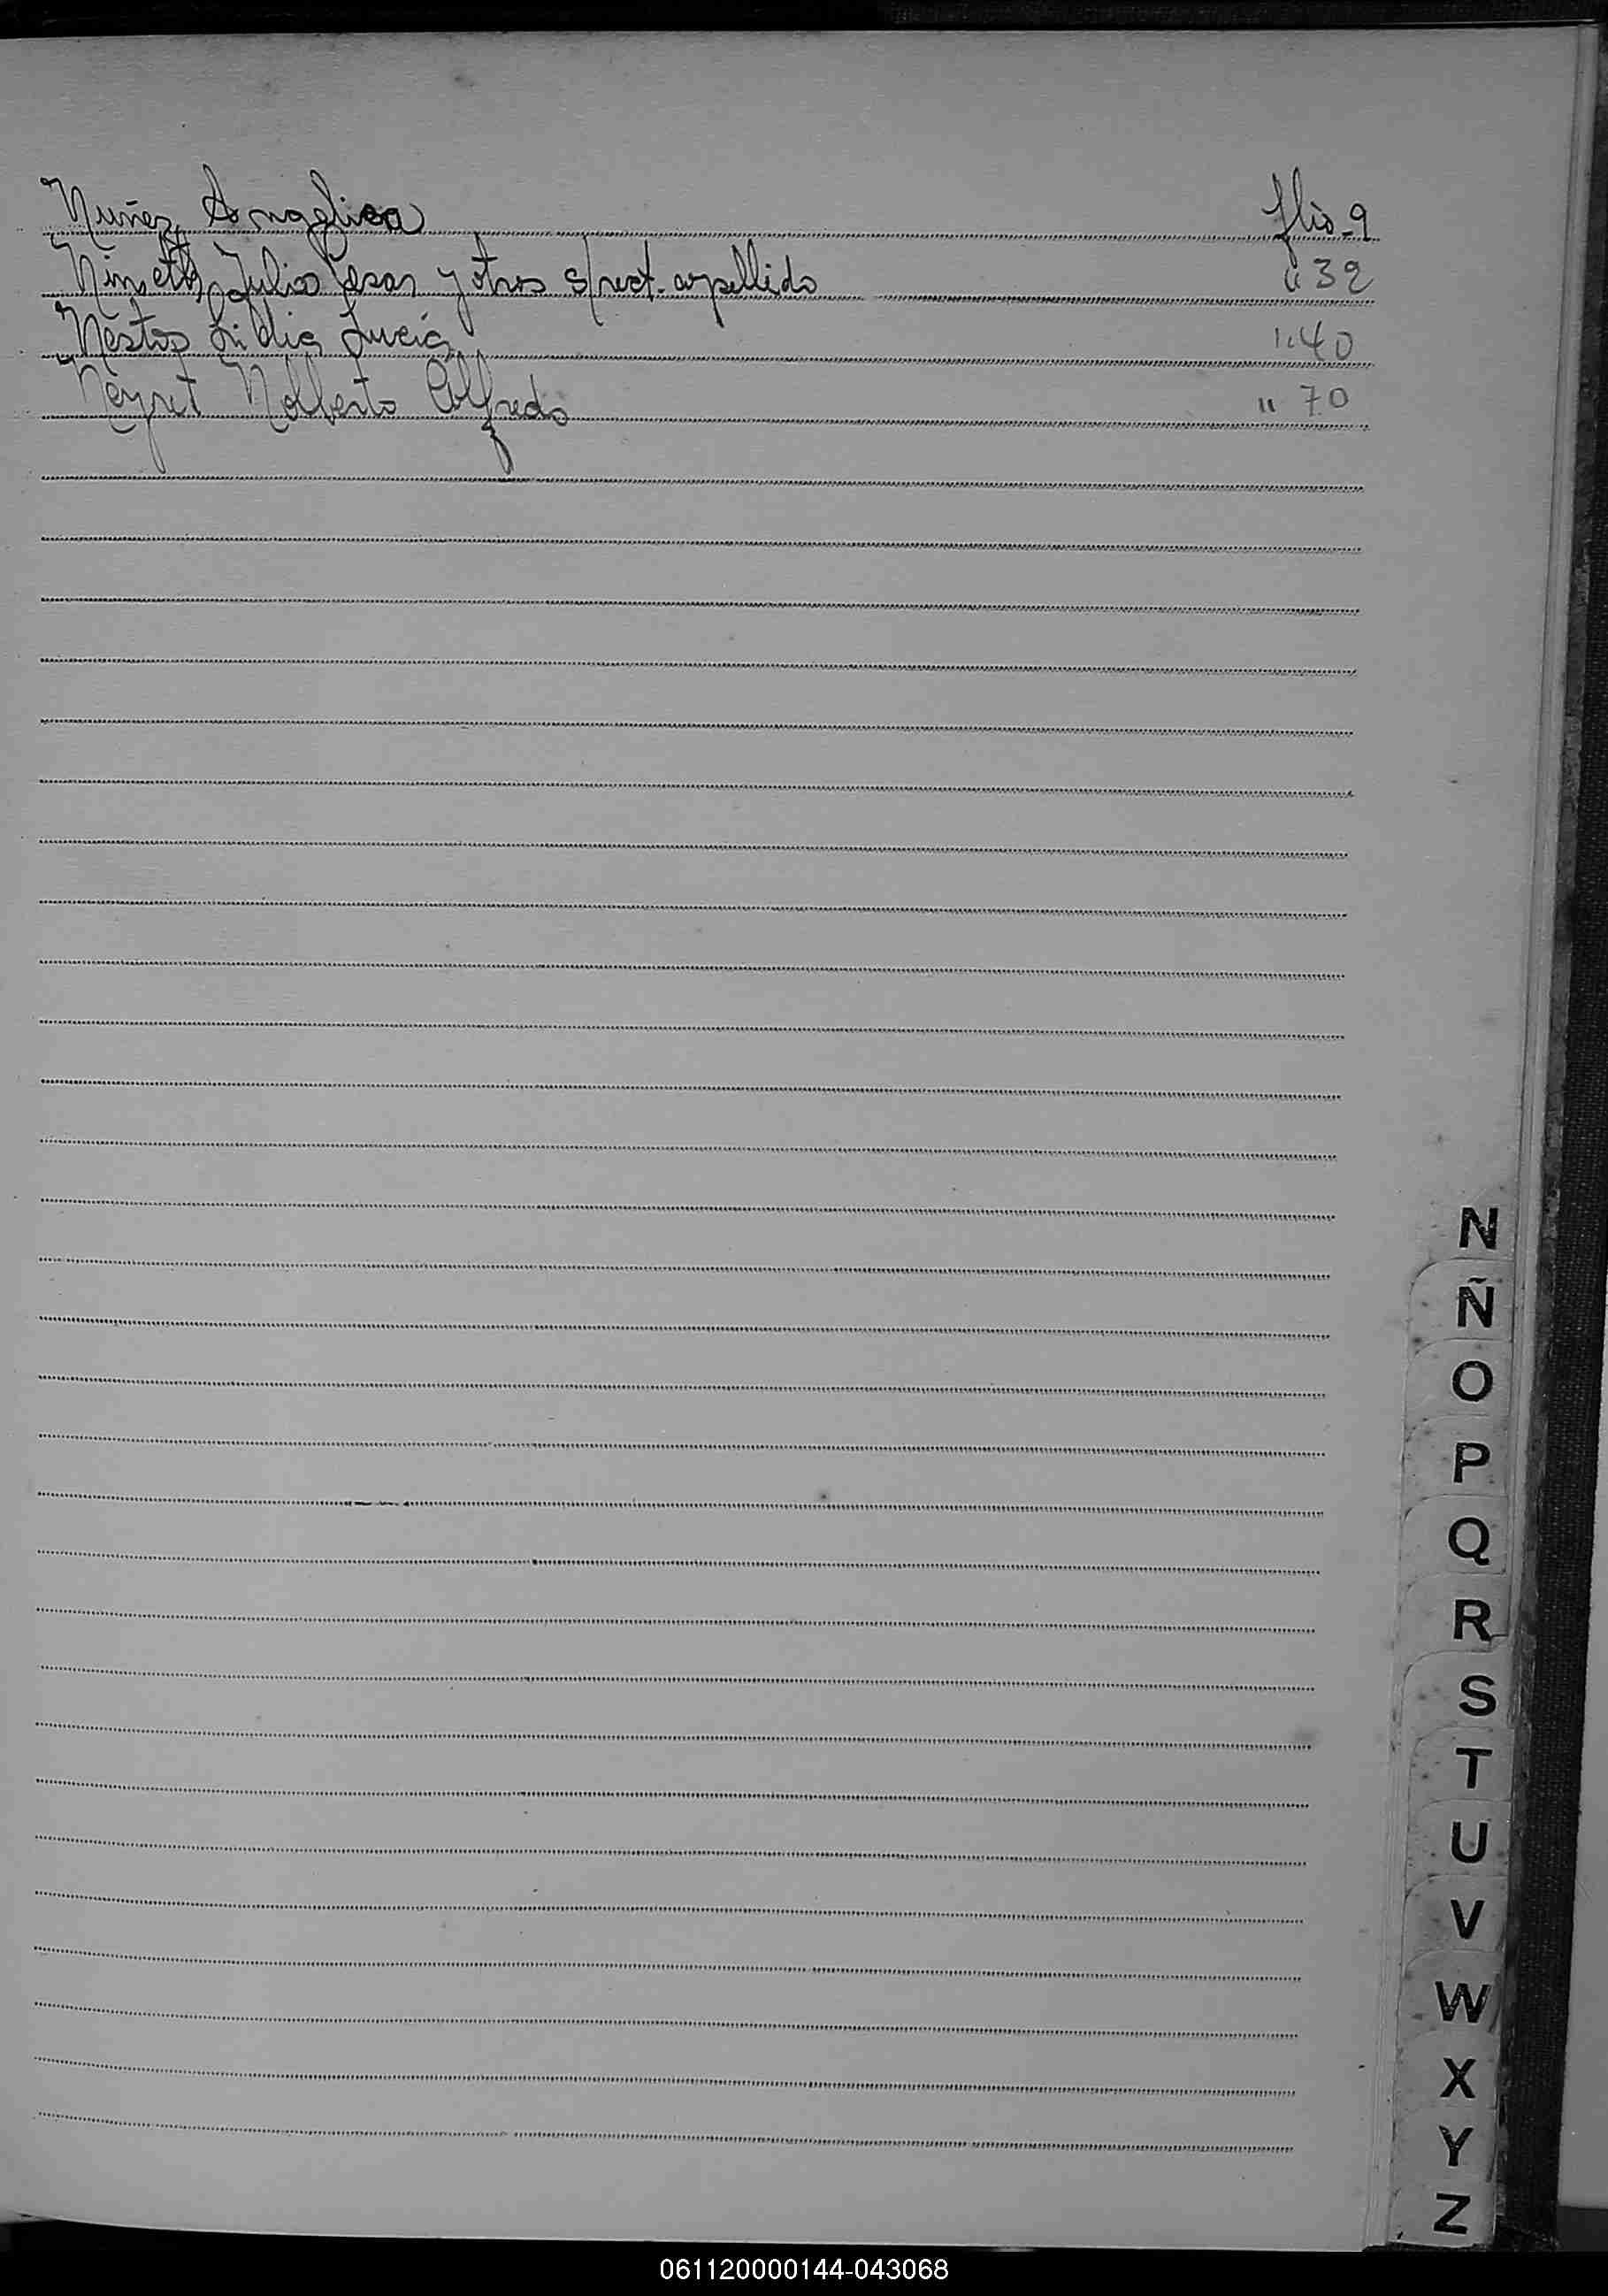 Nuñez, Angelica flio-9
Nimeth, Julio Cesar y otros s/rect. apellido " 32
Néstos Lidia Lucía " 40
Neyret Nolberto Alfredo " 70
N
Ñ
O
P
Q
R
S
T
U
V
W
X
Y
Z
061120000144-043068